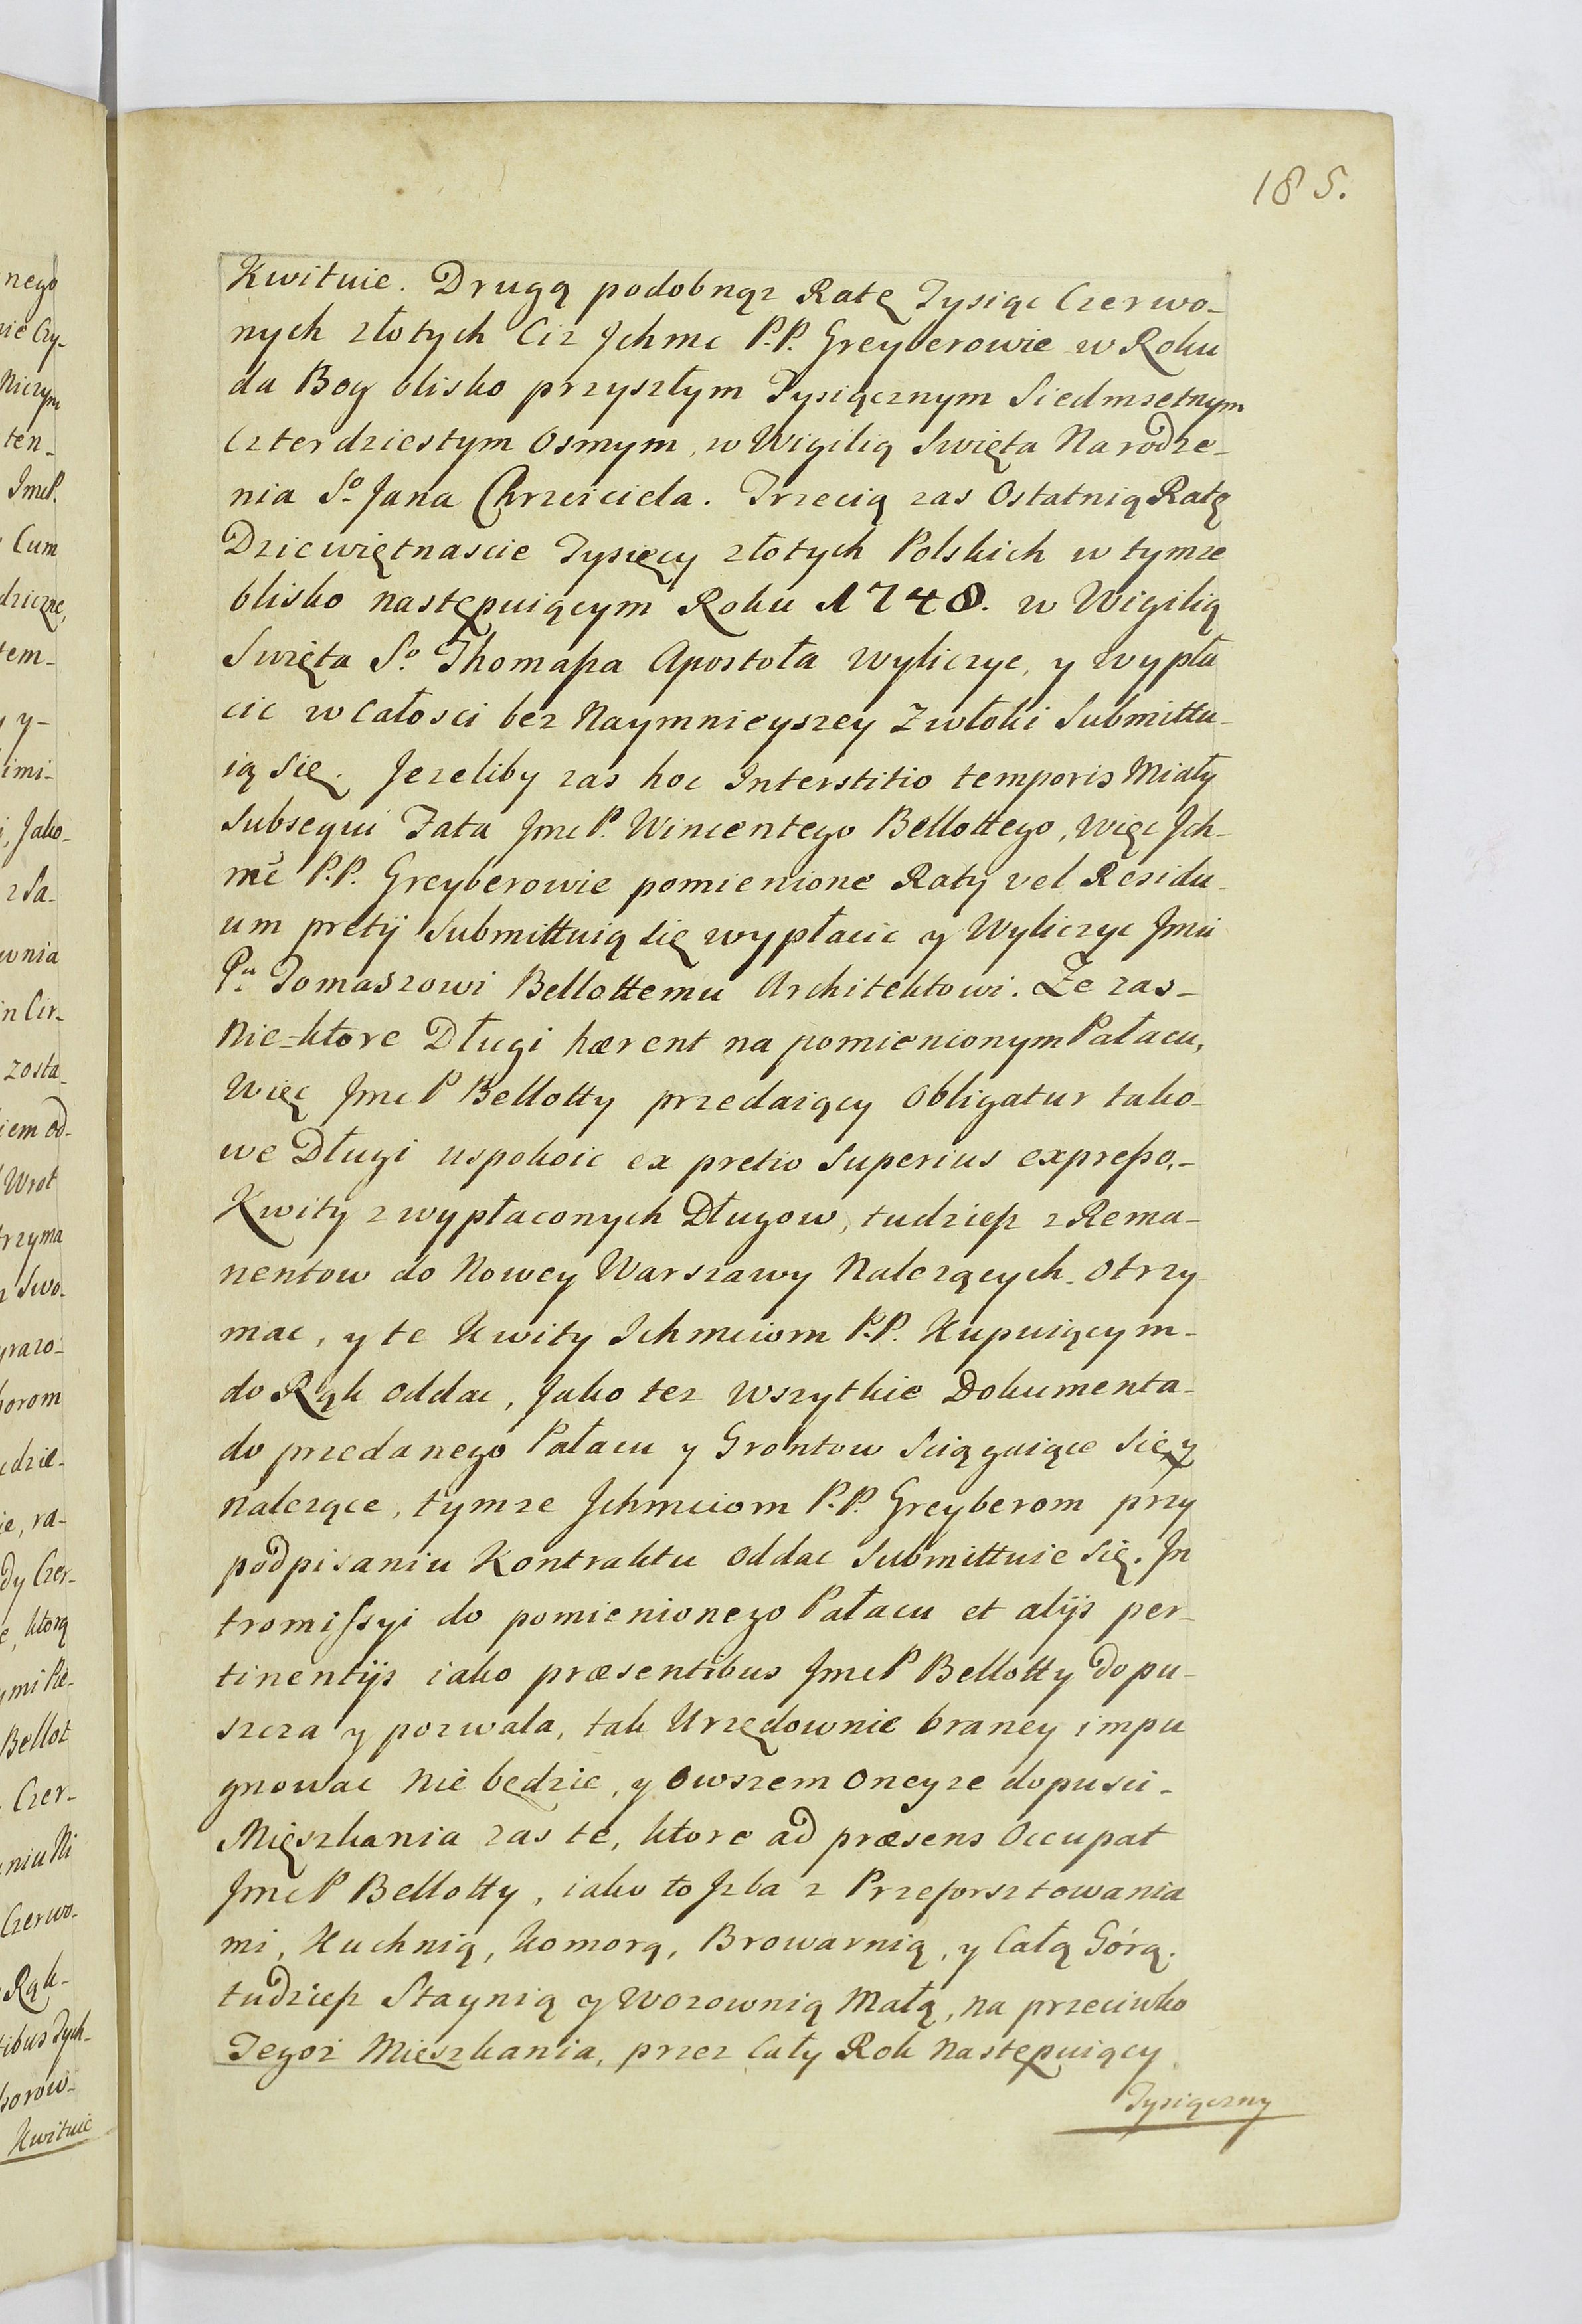 185.
Kwituie. Drugą podobnąz Ratę Tysiąc Czerwo-
nych złotych Ciz Jchmc P.P. Greyberowie w Roku
da Bog blisko przyszłym Tysiącznym Siedmsetnym
Czterdziestym Osmym, w Wigilią Swięta Narodze-
nia S⁰ Jana Chrzciciela. Trzecią zas Ostatnią Ratę
Dziewiętnascie Tysięcy złotych Polskich w tymze
blisko następuiącym Roku 1748. w Wigilią
Swięta S.⁰ Thomaſza Apostoła wyliczyc, y wypła
cic w Całosci bez Naymnieyszey Zwłoki Submittu-
ią się. Jezeliby zas hoc Interstitio temporis Miały
Subsequi Fata JmcP. Wincentego Bellottego, więc Jch-
mć P.P. Greyberowie pomienione Raty vel Residu-
um pretij Submittuią się wypłacic y Wyliczyc Jmci
Pu Tomaszowi Bellottemu Architektowi. Ze zas-
Nie-ktore Długi hærent na pomienionym Pałacu,
Więc JmcP Bellotty przedaiący Obligatur tako-
we Długi uspokoic ex pretio Superius expreſso,-
Kwity z wypłaconych Długow, tudzieſz z Rema-
nentow do Nowey Warszawy Nalezących. Otrzy-
mac, y te Kwity Ichmciom P.P. Kupuiącym-
do Rąk oddac, Jako tez wszytkie Dokumenta-
do przedanego Pałacu y Grontow Sciągaiące się y
nalezące, tymze Jchmciom P.P. Greyberom przy
podpisaniu Kontraktu oddac Submittuie się. Jn
tromiſsyi do pomienionego Pałacu et alijs per-
tinentijs iako præsentibus JmcP Bellotty dopu-
szcza y pozwala, tak Urzędownie braney impu
gnowac Nie będzie, y Owszem Oneyze dopusci-
Mięszkania zas te, ktore ad præsens Occupat
JmcP Bellotty, iako to Jzba z Przeforsztowania
mi, Kuchnią, Komorą, Browarnią, y Całą Górą.
tudzieſz Staynią y Wozownią Małą, na przeciwko
Tegoz Mieszkania, przez Cały Rok Następuiący
Tysiączny
nego
Niczym
ten-
JmcP.
Cum
tem-
y y-
imi-
Jako-
wnia
in Cir-
zosta-
iem od-
Wrot
trzyma
Swo-
ie, ra-
dy Czer-
ktorą
Bellot
Czer-
niu Ni
Czerwo-
Rąk-
Kwituie